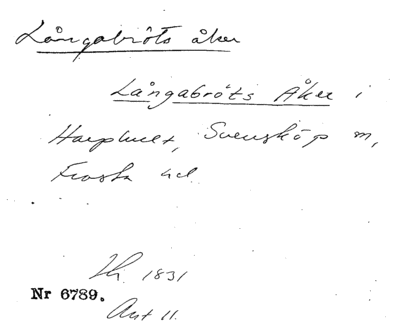 Långabröts åker
Långabröts Åker i
Harphult, Svensköp m,
Frosta hd.
Lh. 1831
Nr 6789.
Akt 11.